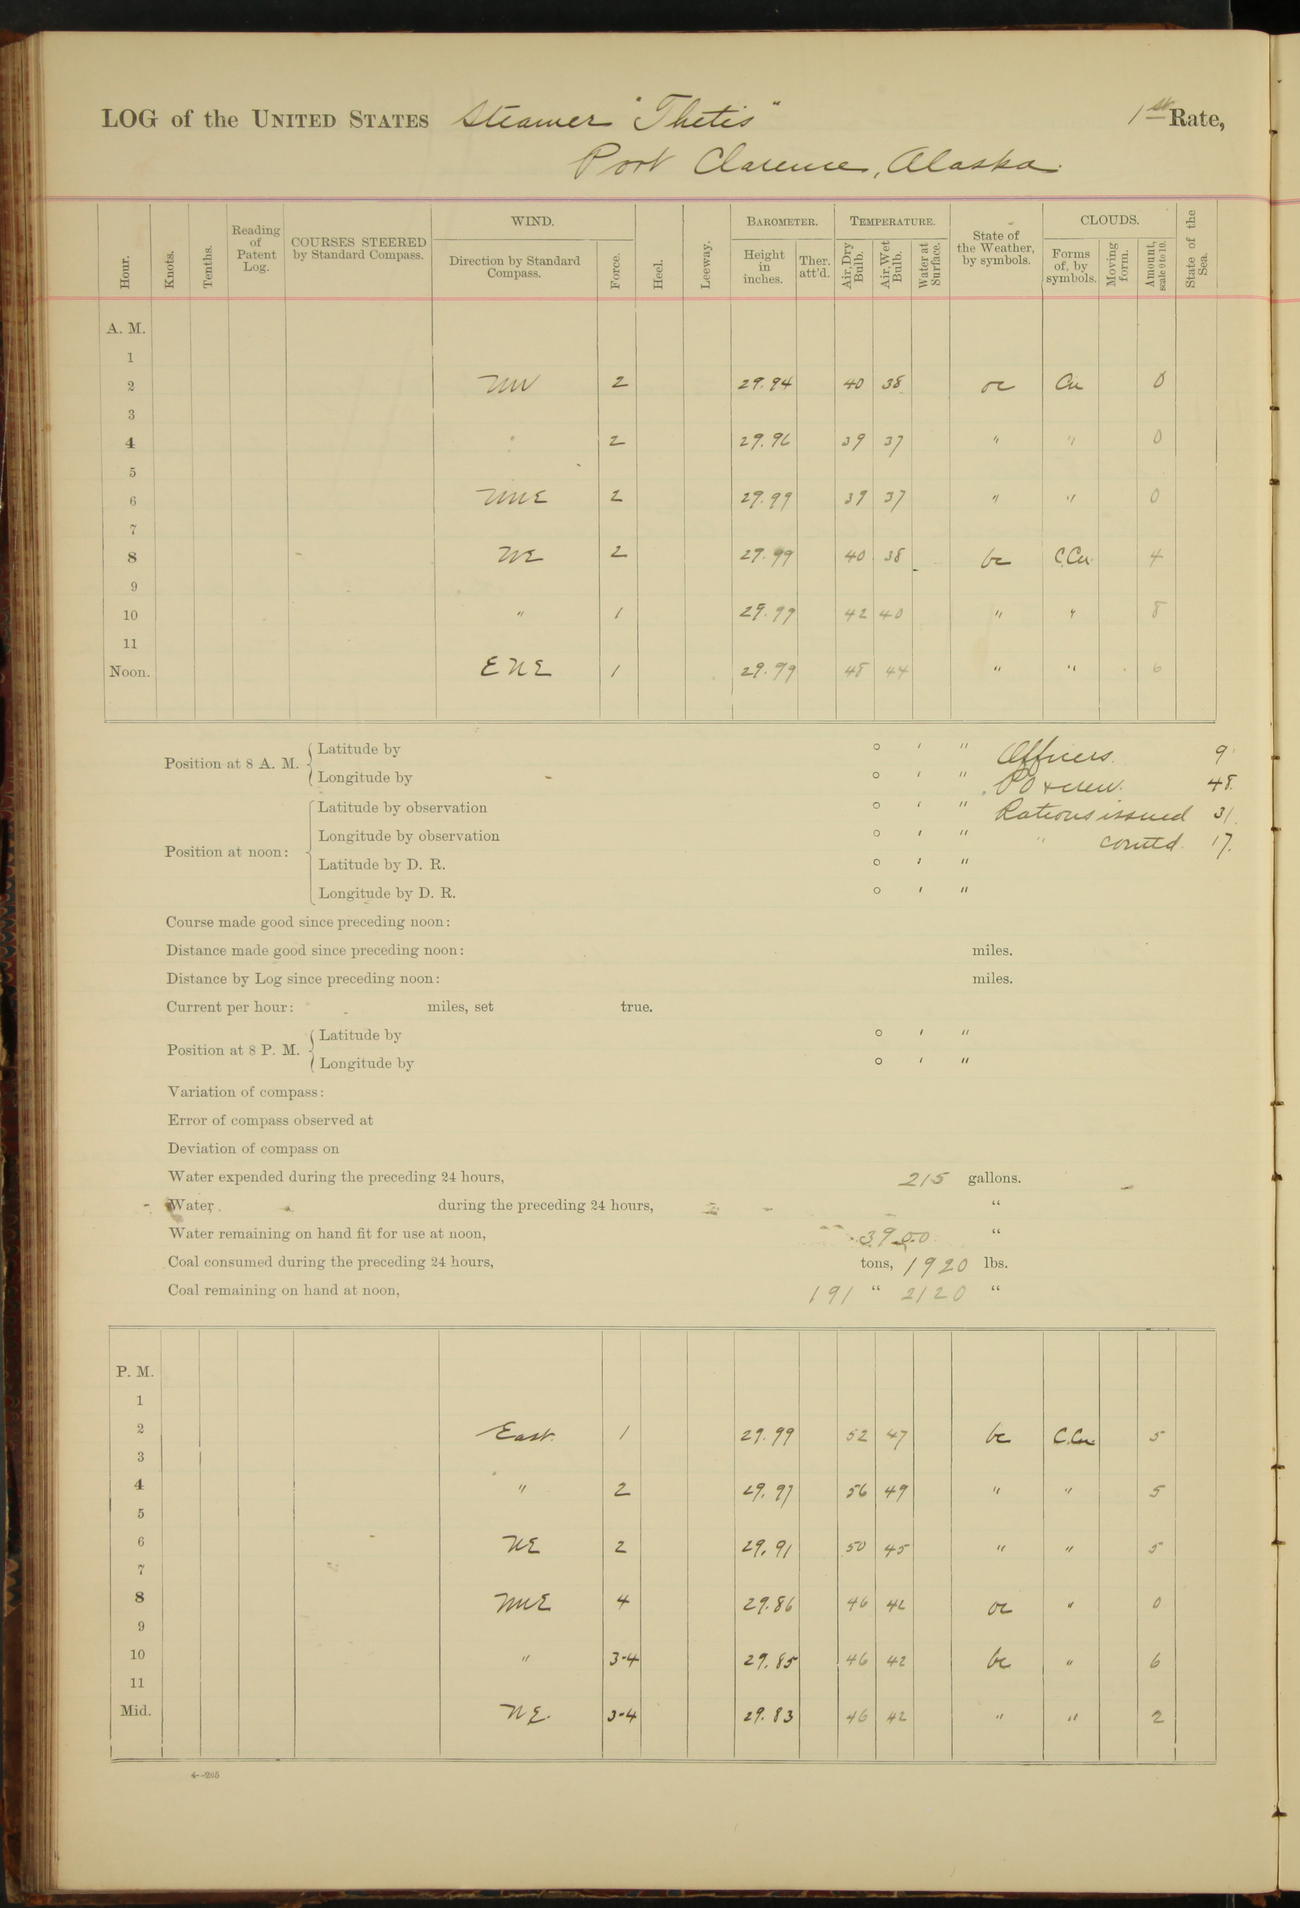 LOG of the UNITED STATES Steamer "Thetis" 1st Rate,
Port Clarence, Alaska.
Hour. Knots. Tenths. Reading of Patent Log. COURSES STEERED by Standard Compass. WIND. Direction by Standard Compass. Force. Heel. Leeway. BAROMETER. Height in inches. Ther. att'd. TEMPERATURE. Air, Dry Bulb. Air, Wet Bulb. Water at Surface. State of the Weather, by symbols. CLOUDS. Forms of, by symbols. Moving form. Amount, scale 0 to 10. State of the Sea.
A. M.
1
2 NW 2 29.94 40 38 oc Cu 0
3
4 " 2 29.96 39 37 " " 0
5
6 NNE 2 29.99 39 37 " " 0
7
8 NE 2 29.99 40 38 bc C.Cu. 4
9
10 " 1 29.99 42 40 " " 8
11
Noon. ENE 1 29.99 48 44 " " 6
Position at 8 A. M. Latitude by ° ' " Officers. 9
Longitude by ° ' " PO & crew. 48.
Position at noon: Latitude by observation ° ' " Rations issued 31.
Longitude by observation ° ' " " comtd. 17.
Latitude by D. R. ° ' "
Longitude by D. R. ° ' "
Course made good since preceding noon:
Distance made good since preceding noon: miles.
Distance by Log since preceding noon: miles.
Current per hour: miles, set true.
Position at 8 P. M. Latitude by ° ' "
Longitude by ° ' "
Variation of compass:
Error of compass observed at
Deviation of compass on
Water expended during the preceding 24 hours, 215 gallons.
Water, during the preceding 24 hours, "
Water remaining on hand fit for use at noon, 3900 "
Coal consumed during the preceding 24 hours, tons, 1920 lbs.
Coal remaining on hand at noon, 191 " 2120 "
P. M.
1
2 East. 1 29.99 52 47 bc C.Cu 5
3
4 " 2 29.97 56 49 " " 5
5
6 NE 2 29.91 50 45 " " 5
7
8 NNE 4 29.86 46 42 oc " 0
9
10 " 3-4 29.85 46 42 bc " 6
11
Mid. NE. 3-4 29.83 46 42 " " 2
4--205